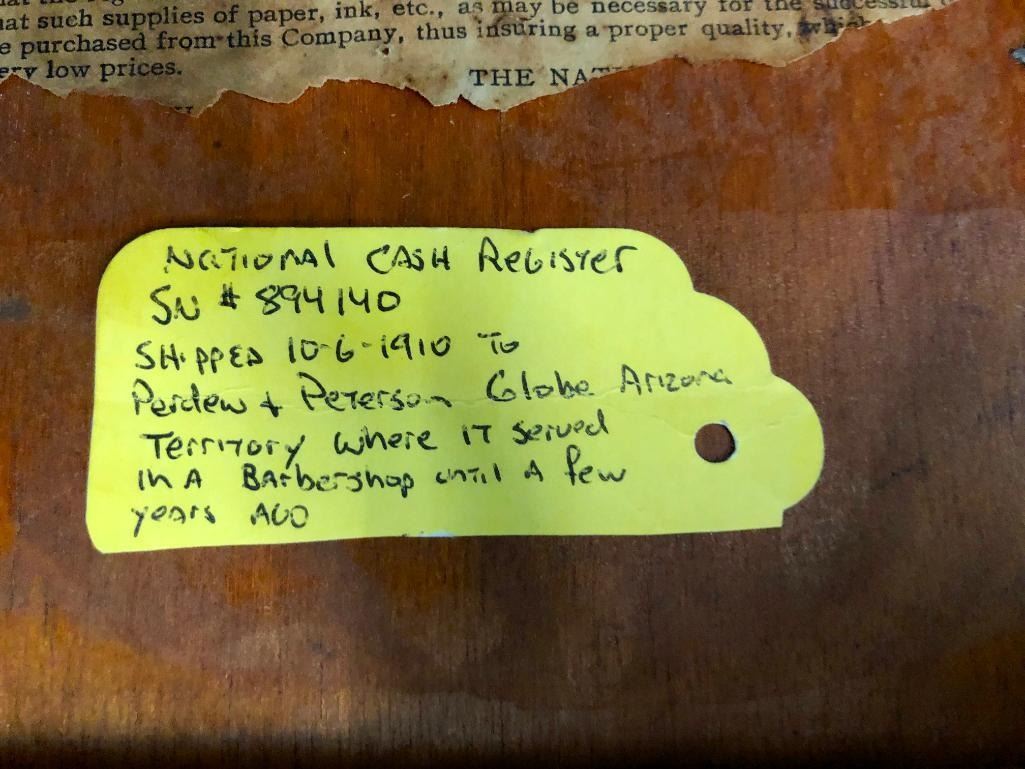 hat such supplies of paper, ink, etc., as may be necessary for the successful
e purchased from this Company, thus insuring a proper quality, which
ery low prices.
THE NAT
NATIONAL CASH REGISTER
SN # 894140
SHIPPED 10-6-1910 TO
Perdew + Peterson Globe Arizona
Territory where it served
in A Barbershop until A few
years AGO